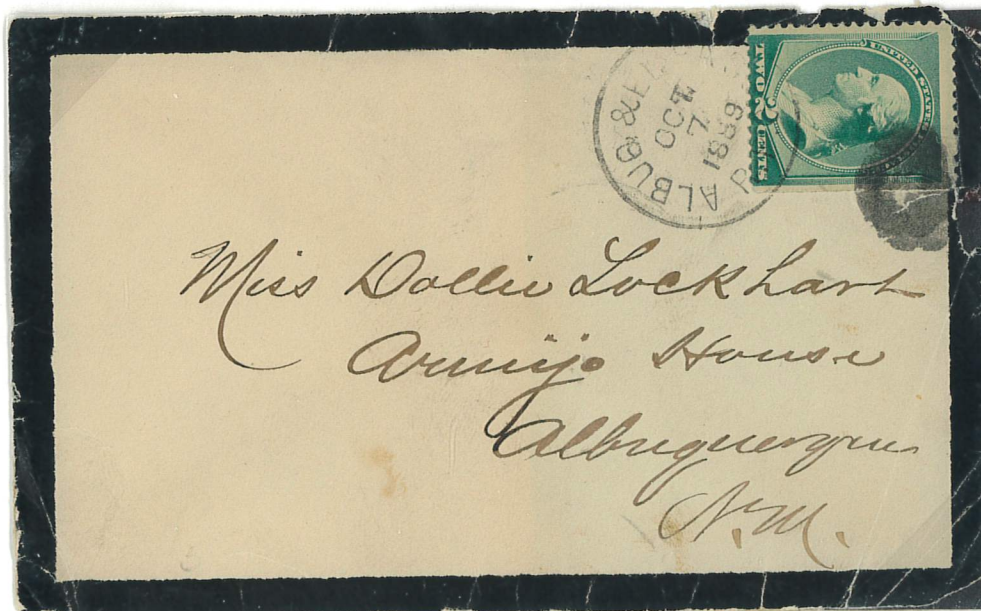 ALBUQ. & EL
OCT
7
1889
UNITED STATES
TWO 2 CENTS
Miss Dollie Lockhart
Armijo House
Albuquerque
N.M.